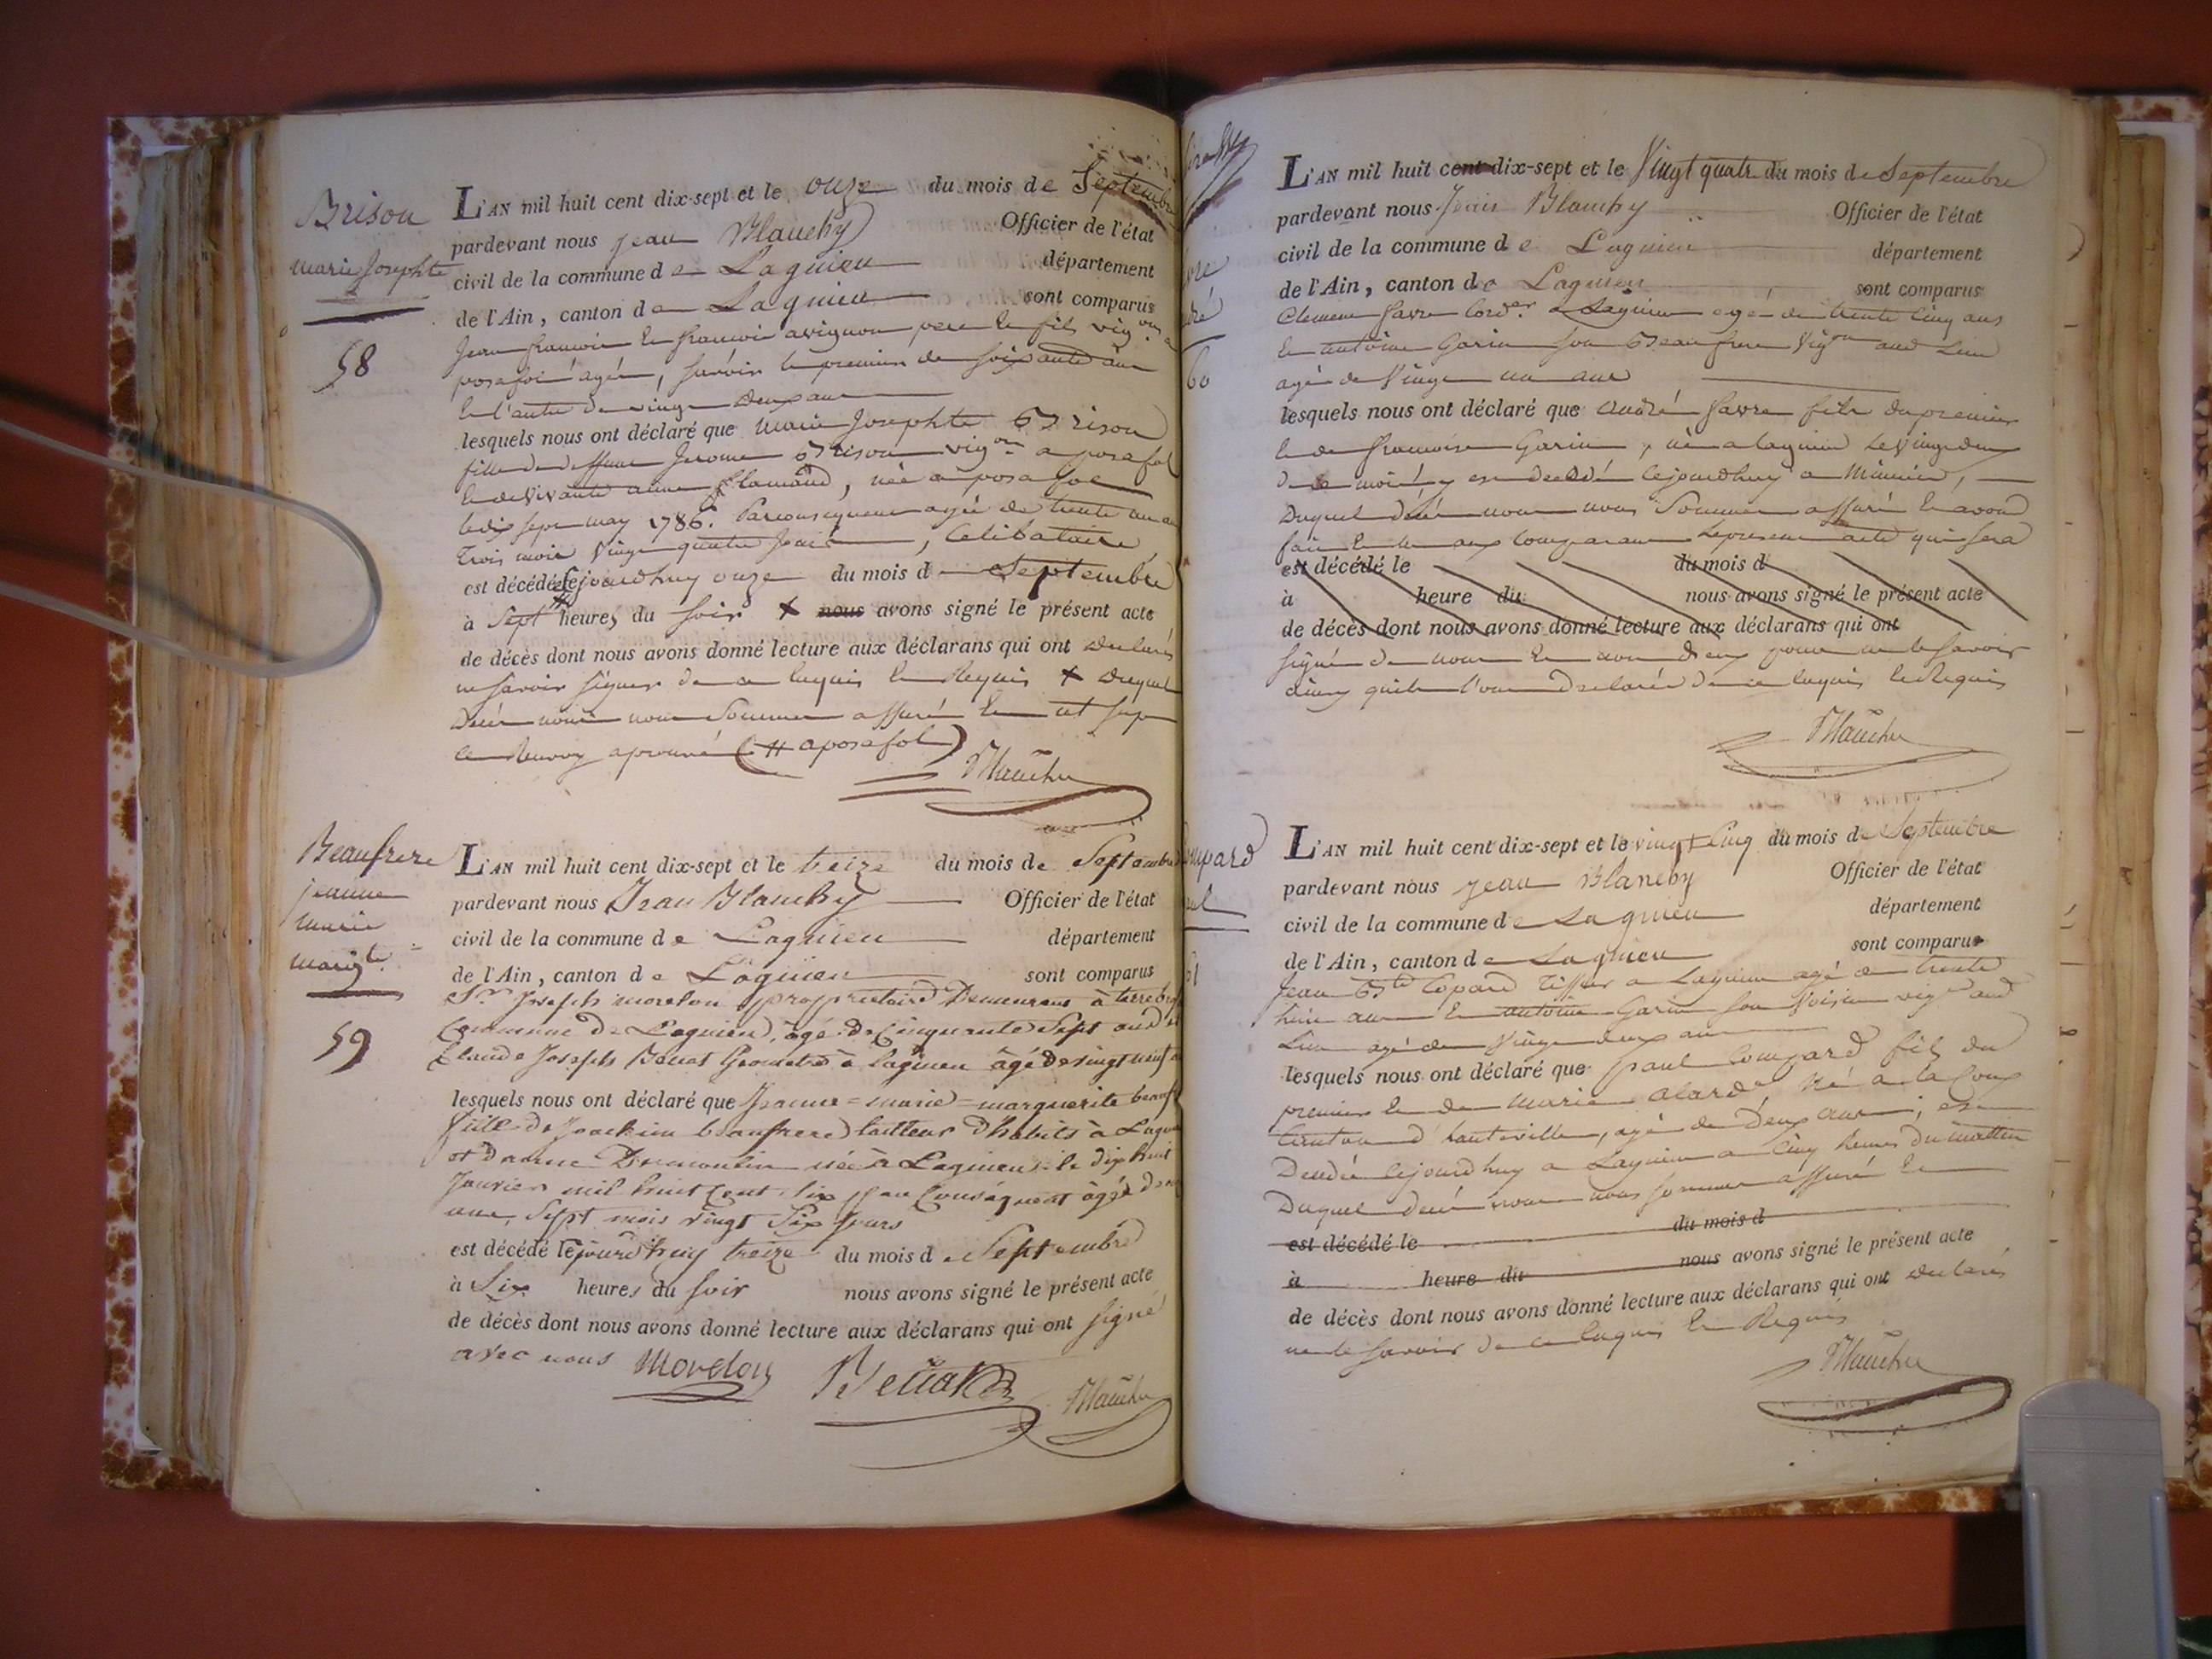 Brison
Marie Josephte
58
L'AN mil huit cent dix-sept et le onze du mois de Septembre
pardevant nous jean Blanchy Officier de l'état
civil de la commune de Lagnieu département
de l'Ain, canton de Lagnieu sont comparus
Jean francois et francois avignon pere et fils vig.ons a
posafol agés, savoir le premier de soixante ans
et l'autre de vingt deux ans
lesquels nous ont déclaré que Marie Josephte Brison
fille de deffunt Jerome Brison vig.on a posafol
et de vivante anne flamand, née a posafol
le dix sept may 1786. Par consequent agée de trente un ans
Trois mois vingt quatre jours, Celibataire
est décédée cejourdhuy onze du mois de Septembre
à Sept # heures du soir + nous avons signé le présent acte
de décès dont nous avons donné lecture aux déclarans qui ont declarés
ne savoir signer de ce enquis et Requis + duquel
Decés nous nous Sommes assuré et
le Renvoy aprouvé (# a posafol)
Blanchy
Beaufrere
jeanne
marie
marg.te
59
L'AN mil huit cent dix-sept et le treize du mois de Septembre
pardevant nous Jean Blanchy Officier de l'état
civil de la commune de Lagnieu département
de l'Ain, canton de Lagnieu sont comparus
S.r Joseph morelon proprietaire Demeurant à
Commune de Lagnieu, agé de Cinquante Sept ans et
Claude Joseph Géometre à lagnieu âgé de vingt neuf
lesquels nous ont déclaré que Jeanne=marie=marguerite beauf
fille de Joachim beaufrere tailleur d'habits à Lagnieu
et d'anne Dumoulin née à Lagnieu le dix huit
Janvier mil huit Cent six par Conséquent âgée d'onze
ans, Sept mois vingt Six jours
est décédé cejourd'huy treize du mois de Septembre
à Six heures du soir nous avons signé le présent acte
de décès dont nous avons donné lecture aux déclarans qui ont signé
avec nous Morelon
Blanchy
60
L'AN mil huit cent dix-sept et le Vingt quatre du mois de Septembre
pardevant nous Jean Blanchy Officier de l'état
civil de la commune de Lagnieu département
de l'Ain, canton de Lagnieu sont comparus
Clement favre cord.er a Lagnieu agé de trente Cinq ans
et antoine Garin son Beaufrere Vig.on aud Lieu
agé de Vingt un ans
lesquels nous ont déclaré que andré favre fils du premier
et de francoise Garin, né a lagnieu le vingt deux
de ce mois y est decedé cejourdhuy a Minuit,
Duquel decés nous nous Sommes assuré et avons
fait lecture aux Comparans du present acte qui sera
est décédé le du mois d
à heure du nous avons signé le présent acte
de décès dont nous avons donné lecture aux déclarans qui ont
signé de nous et non d'eux pour ne le savoir
ainsy qu'ils l'ont declaré de ce enquis et Requis
Blanchy
61
L'AN mil huit cent dix-sept et le vingt Cinq du mois de Septembre
pardevant nous jean Blanchy Officier de l'état
civil de la commune de Lagnieu département
de l'Ain, canton de Lagnieu sont comparus
Jean B.te Copard Tisseur a Lagnieu agé de trente
huit ans et antoine Garin son Voisin vig.on aud
Lieu agé de Vingt deux ans
lesquels nous ont déclaré que paul Compard fils du
premier et de Marie alard, Né a
Canton d'hauteville, agé de Deux ans, est
Decedé cejourdhuy a Lagnieu a Cinq heures du matin
Duquel decés nous nous sommes assuré et
est décédé le du mois d
à heure du nous avons signé le présent acte
de décès dont nous avons donné lecture aux déclarans qui ont declarés
ne le savoir de ce enquis et Requis
Blanchy